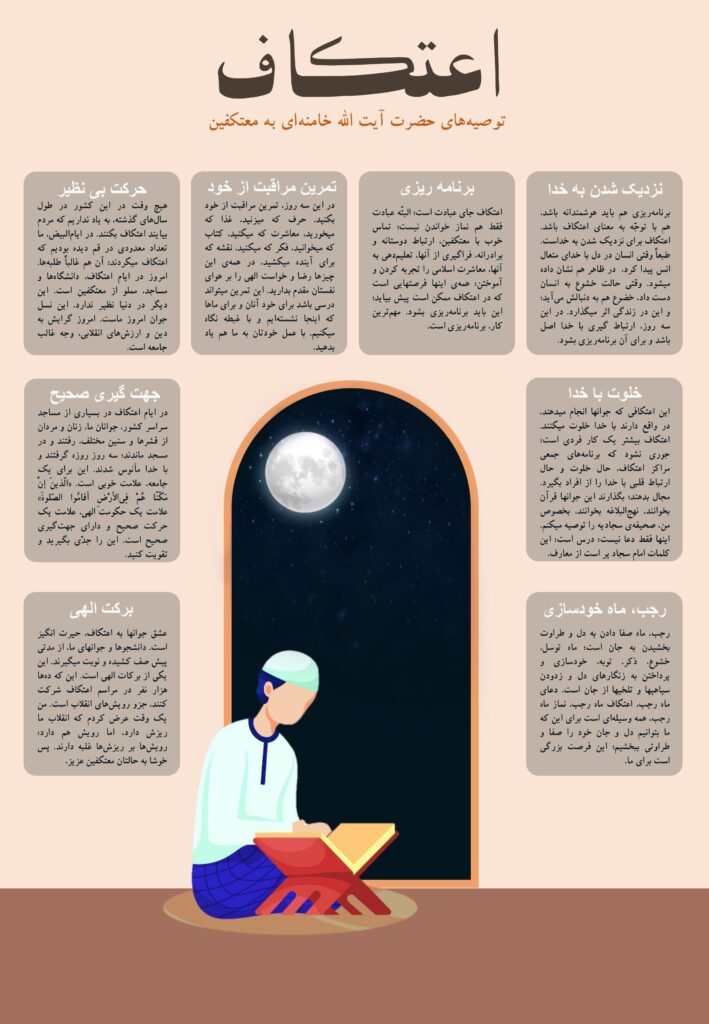 اعتکاف
توصیه‌های حضرت آیت الله خامنه‌ای به معتکفین
نزدیک شدن به خدا
برنامه‌ریزی هم باید هوشمندانه باشد.
هم با توجّه به معنای اعتکاف باشد.
اعتکاف برای نزدیک شدن به خداست.
طبعاً وقتی انسان در دل با خدای متعال
انس پیدا کرد. در ظاهر هم نشان داده
میشود. وقتی حالت خشوع به انسان
دست داد، خضوع هم به دنبالش می‌آید؛
و این در زندگی اثر میگذارد. در این
سه روز، ارتباط گیری با خدا اصل
باشد و برای آن برنامه‌ریزی بشود.
برنامه ریزی
اعتکاف جای عبادت است؛ البتّه عبادت
فقط هم نماز خواندن نیست؛ تماس
خوب با معتکفین، ارتباط دوستانه و
برادرانه، فراگیری از آنها، تعلیم‌دهی به
آنها، معاشرت اسلامی را تجربه کردن و
آموختن؛ همه‌ی اینها فرصتهایی است
که در اعتکاف ممکن است پیش بیاید؛
این باید برنامه‌ریزی بشود. مهم‌ترین
کار، برنامه‌ریزی است.
تمرین مراقبت از خود
در این سه روز، تمرین مراقبت از خود
بکنید. حرف که میزنید. غذا که
میخورید، معاشرت که میکنید. کتاب
که میخوانید. فکر که میکنید. نقشه که
برای آینده میکشید. در همه‌ی این
چیزها رضا و خواست الهی را بر هوای
نفستان مقدم بدارید. این تمرین میتواند
درسی باشد برای خود آنان و برای ماها
که اینجا نشسته‌ایم و با غبطه نگاه
میکنیم. با عمل خودتان به ما هم یاد
بدهید.
حرکت بی نظیر
هیچ وقت در این کشور در طول
سال‌های گذشته، به یاد نداریم که مردم
بیایند اعتکاف بکنند. در ایام‌البیض، ما
تعداد معدودی در قم دیده بودیم که
اعتکاف میکردند؛ آن هم غالباً طلبه‌ها.
امروز در ایام اعتکاف، دانشگاه‌ها و
مساجد، مملو از معتکفین است. این
دیگر در دنیا نظیر ندارد. این نسل
جوان امروز ماست. امروز گرایش به
دین و ارزش‌های انقلابی، وجه غالب
جامعه است.
خلوت با خدا
این اعتکافی که جوانها انجام میدهند،
در واقع دارند با خدا خلوت میکنند.
اعتکاف بیشتر یک کار فردی است؛
جوری نشود که برنامه‌های جمعی
مراکز اعتکاف، حال خلوت و حال
ارتباط قلبی با خدا را از افراد بگیرد.
مجال بدهند؛ بگذارند این جوانها قرآن
بخوانند، نهج‌البلاغه بخوانند، بخصوص
من، صحیفه‌ی سجادیه را توصیه میکنم.
اینها فقط دعا نیست؛ درس است؛ این
کلمات امام سجاد پر است از معارف.
جهت گیری صحیح
در ایام اعتکاف در بسیاری از مساجد
سراسر کشور، جوانان ما، زنان و مردان
از قشرها و سنین مختلف، رفتند و در
مسجد ماندند؛ سه روز روزه گرفتند و
با خدا مأنوس شدند. این برای یک
جامعه، علامت خوبی است. «الَّذینَ إِنْ
مَکَّنّا هُمْ فِی‌الأَرْضِ أقامُوا الصَّلوةَ»
علامت یک حکومت الهی، علامت یک
حرکت صحیح و دارای جهت‌گیری
صحیح است. این را جدّی بگیرید و
تقویت کنید.
رجب، ماه خودسازی
رجب، ماه صفا دادن به دل و طراوت
بخشیدن به جان است؛ ماه توسل،
خشوع، ذکر، توبه، خودسازی و
پرداختن به زنگارهای دل و زدودن
سیاهیها و تلخیها از جان است. دعای
ماه رجب، اعتکاف ماه رجب، نماز ماه
رجب، همه وسیله‌ای است برای این که
ما بتوانیم دل و جان خود را صفا و
طراوتی ببخشیم؛ این فرصت بزرگی
است برای ما.
برکت الهی
عشق جوانها به اعتکاف، حیرت انگیز
است. دانشجوها و جوانهای ما، از مدتی
پیش صف کشیده و نوبت میگیرند. این
یکی از برکات الهی است. این که ده‌ها
هزار نفر در مراسم اعتکاف شرکت
کنند، جزو رویش‌های انقلاب است. من
یک وقت عرض کردم که انقلاب ما
ریزش دارد، اما رویش هم دارد؛
رویش‌ها بر ریزش‌ها غلبه دارند. پس
خوشا به حالتان معتکفین عزیز.